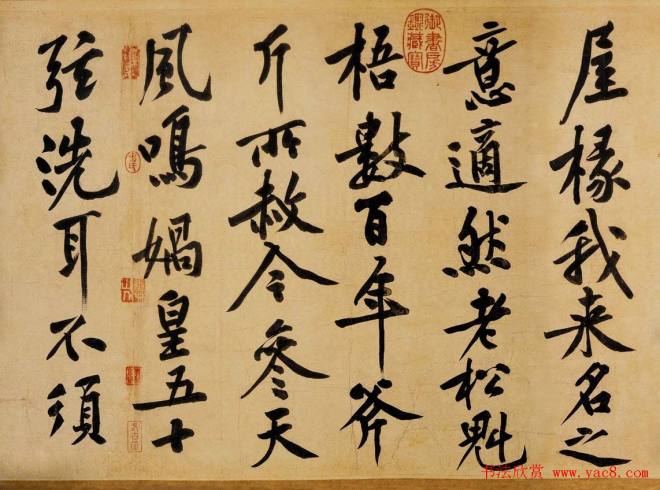 屋椽我来名之
意適然老松魁
梧數百年斧
斤所赦今參天
風鳴媧皇五十
弦洗耳不須
御書房鑑藏寶
书法欣赏 www.yac8.com